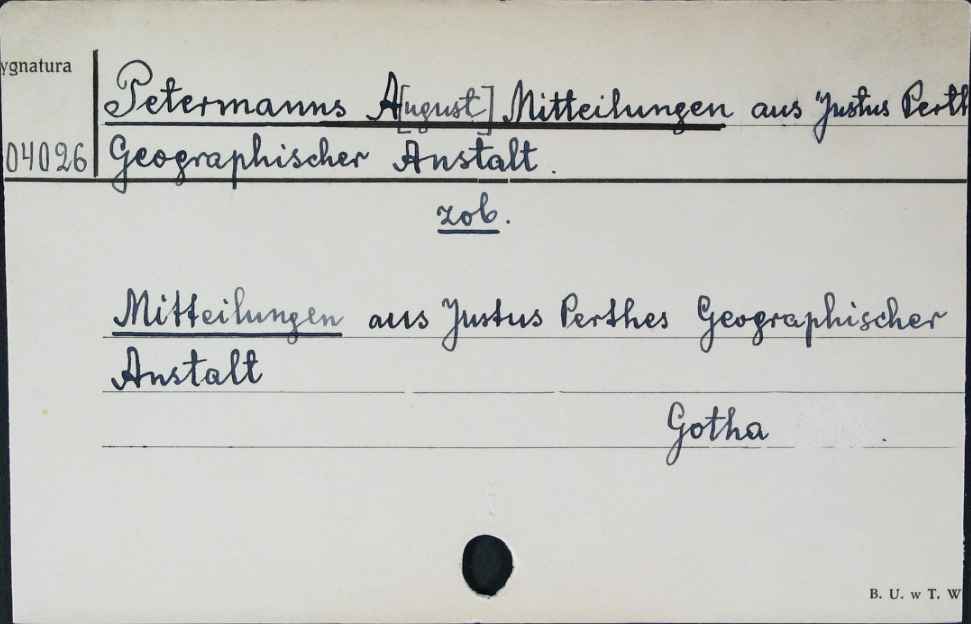 ygnatura
Petermanns A[ugust] Mitteilungen aus Justus Perth
04026
Geographischer Anstalt.
zob.
Mitteilungen aus Justus Perthes Geographischer
Anstalt
Gotha
B. U. w T. W